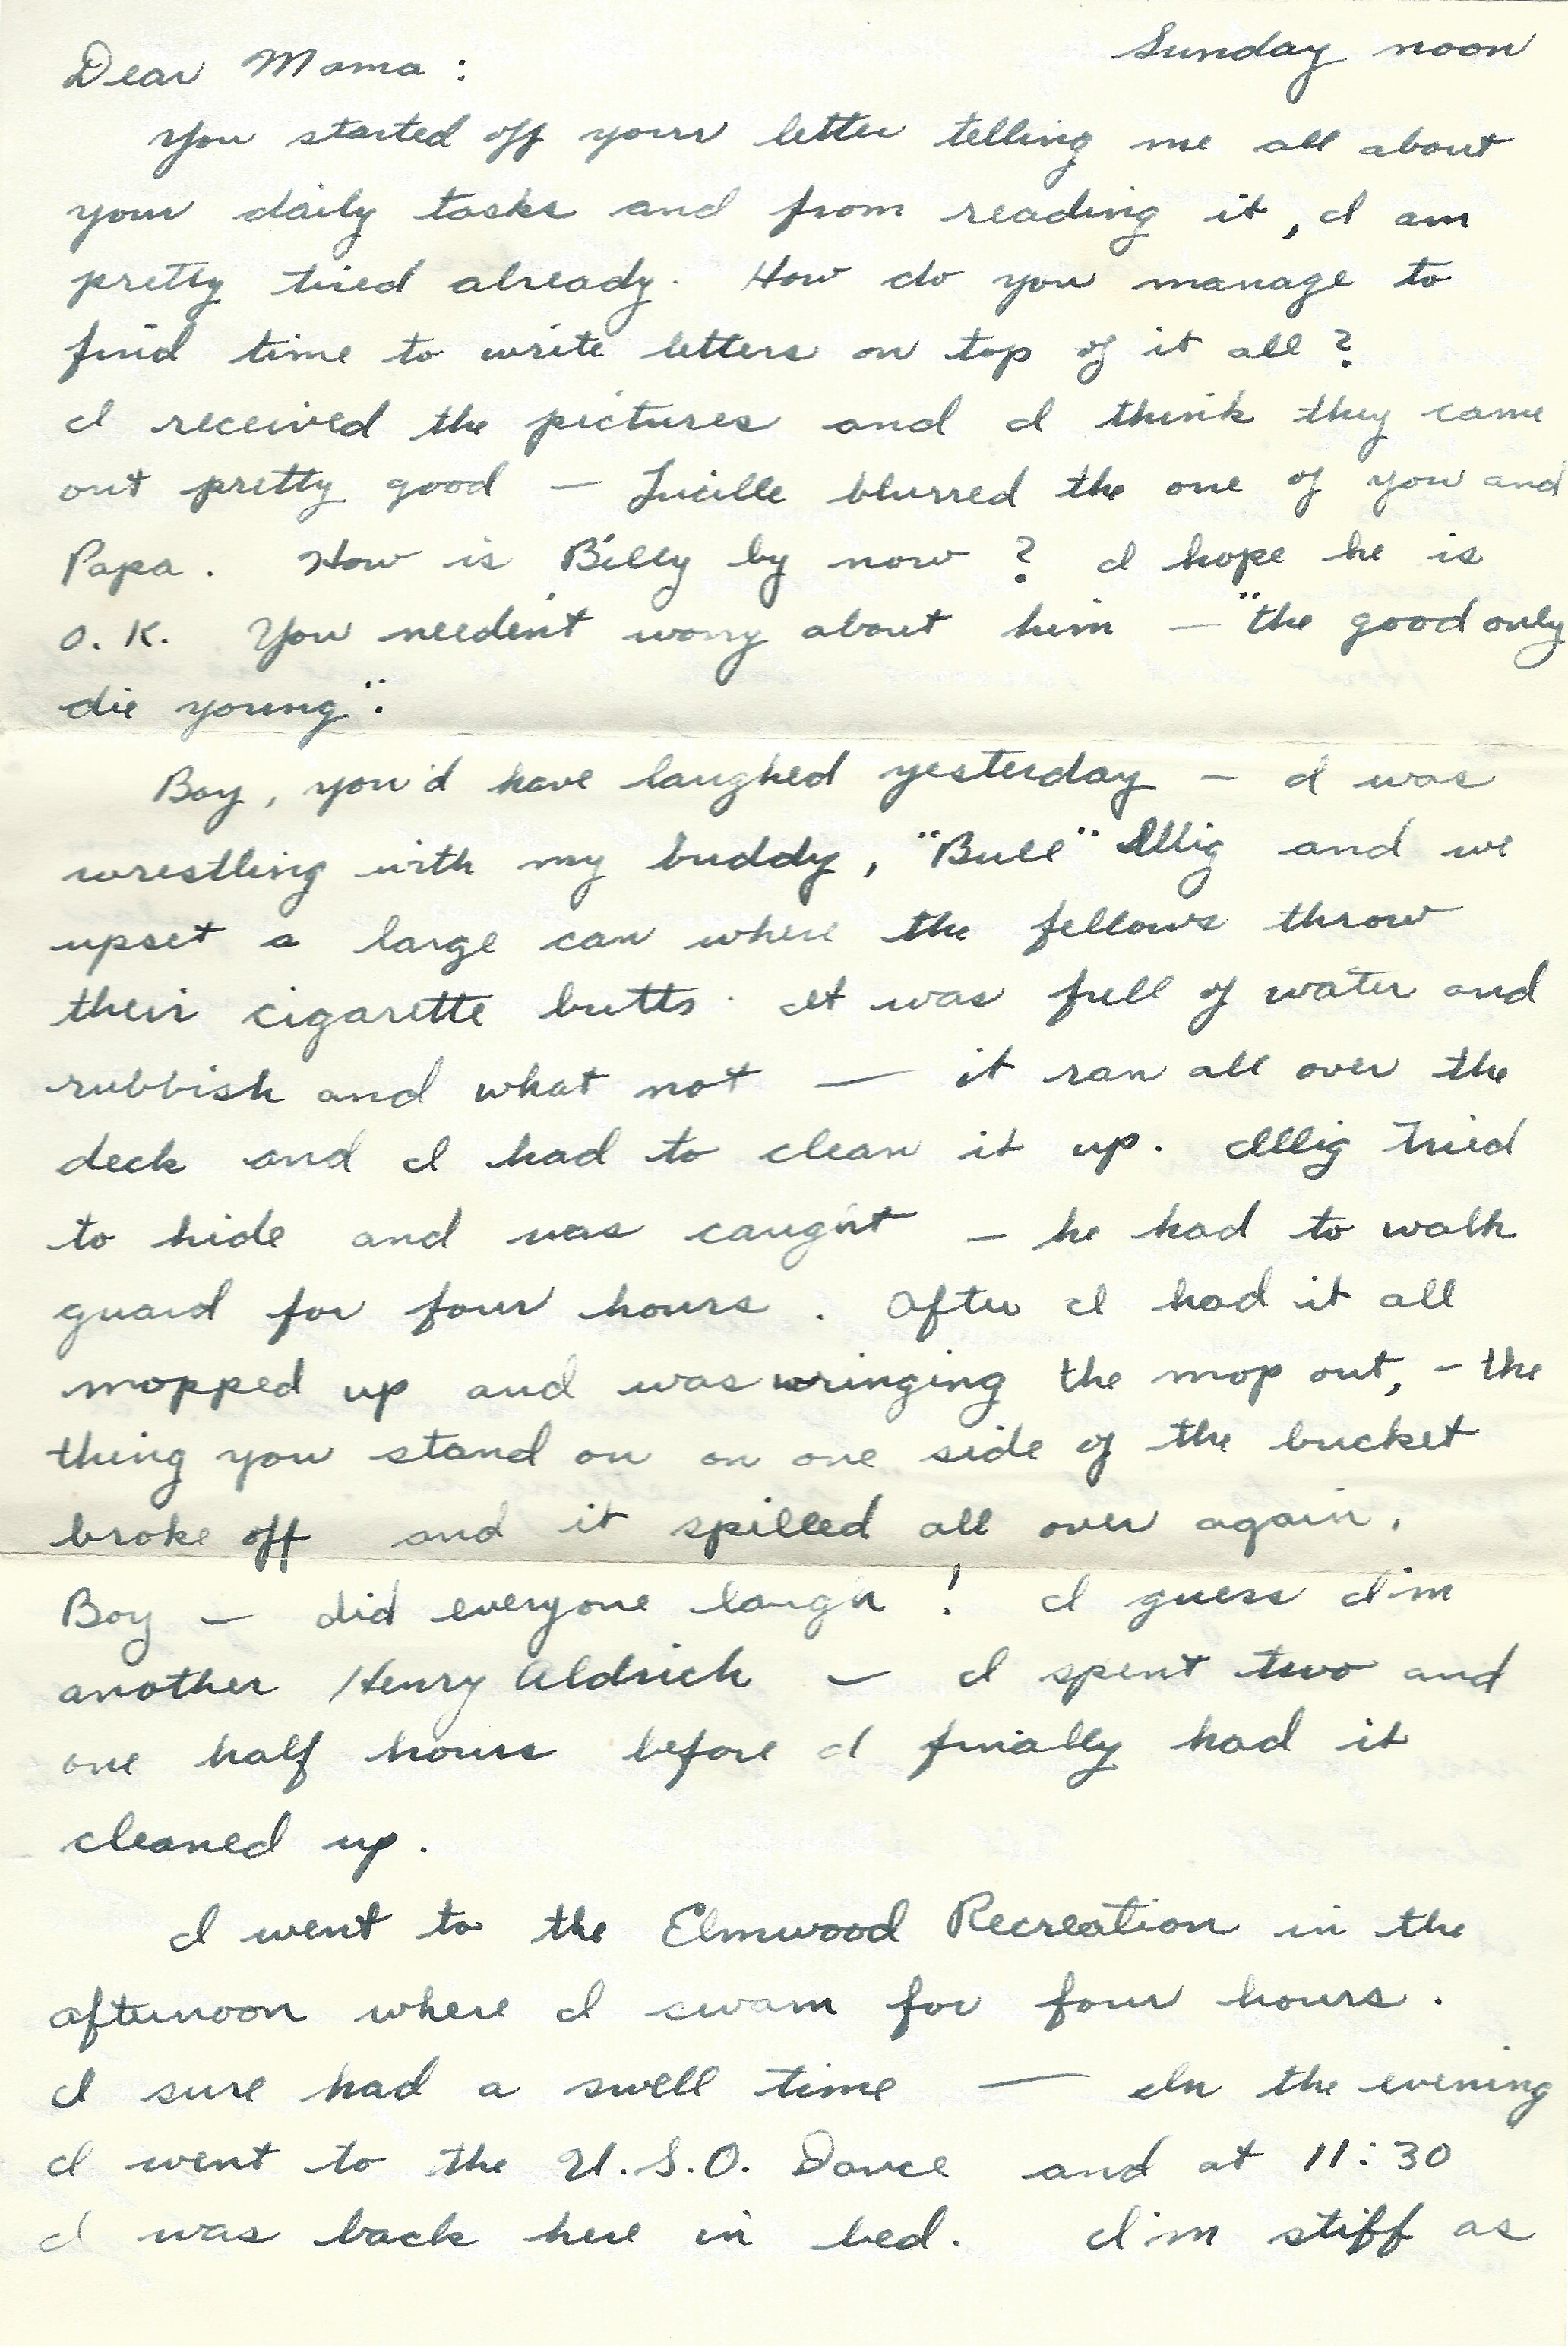 Sunday noon
Dear Mama :
You started off your letter telling me all about
your daily tasks and from reading it, I am
pretty tired already. How do you manage to
find time to write letters on top of it all ?
I received the pictures and I think they came
out pretty good — Lucille blurred the one of you and
Papa. How is Billy by now ? I hope he is
O.K. You needen't worry about him — "the good only
die young".
Boy, you'd have laughed yesterday — I was
wrestling with my buddy, "Bull" Illig and we
upset a large can where the fellows throw
their cigarette butts. It was full of water and
rubbish and what not — it ran all over the
deck and I had to clean it up. Illig tried
to hide and was caught — he had to walk
guard for four hours. After I had it all
mopped up and was wringing the mop out, — the
thing you stand on on one side of the bucket
broke off and it spilled all over again.
Boy — did everyone laugh ! I guess I'm
another Henry Aldrich — I spent two and
one half hours before I finially had it
cleaned up.
I went to the Elmwood Recreation in the
afternoon where I swam for four hours.
I sure had a swell time — In the evening
I went to the U.S.O. Dance and at 11:30
I was back here in bed. I'm stiff as